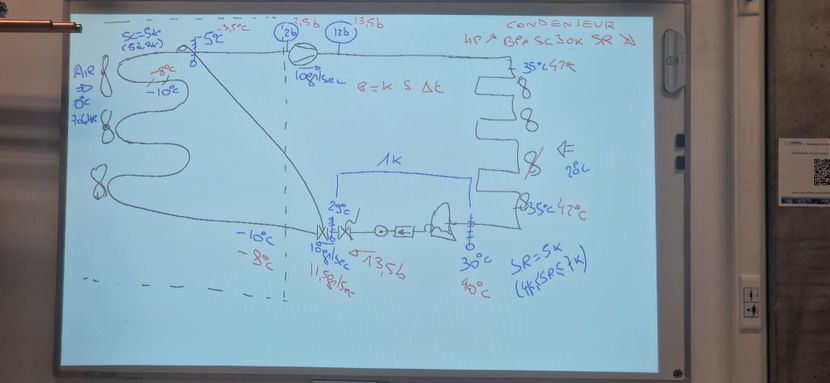 CONDENSEUR
HP ↗ BP↗ SC 30K SR ↘
SC=5K
-5°C -3,5°C
2b 2,5b
12b 13,5b
10gr/sec
35°C 42°C
AIR
⇒
0°C
-8°C
-10°C
Q = K · S · Δt
1K
20°C
29°C
35°C 42°C
-10°C
-8°C
10gr/sec
11,5gr/sec
13,5b
30°C
40°C
SR = 5K
(4K≤SR≤7K)